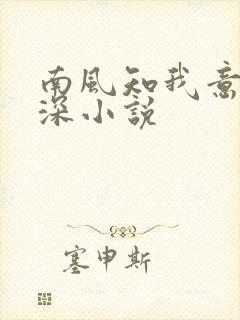 南風知我意
深小說
塞申斯